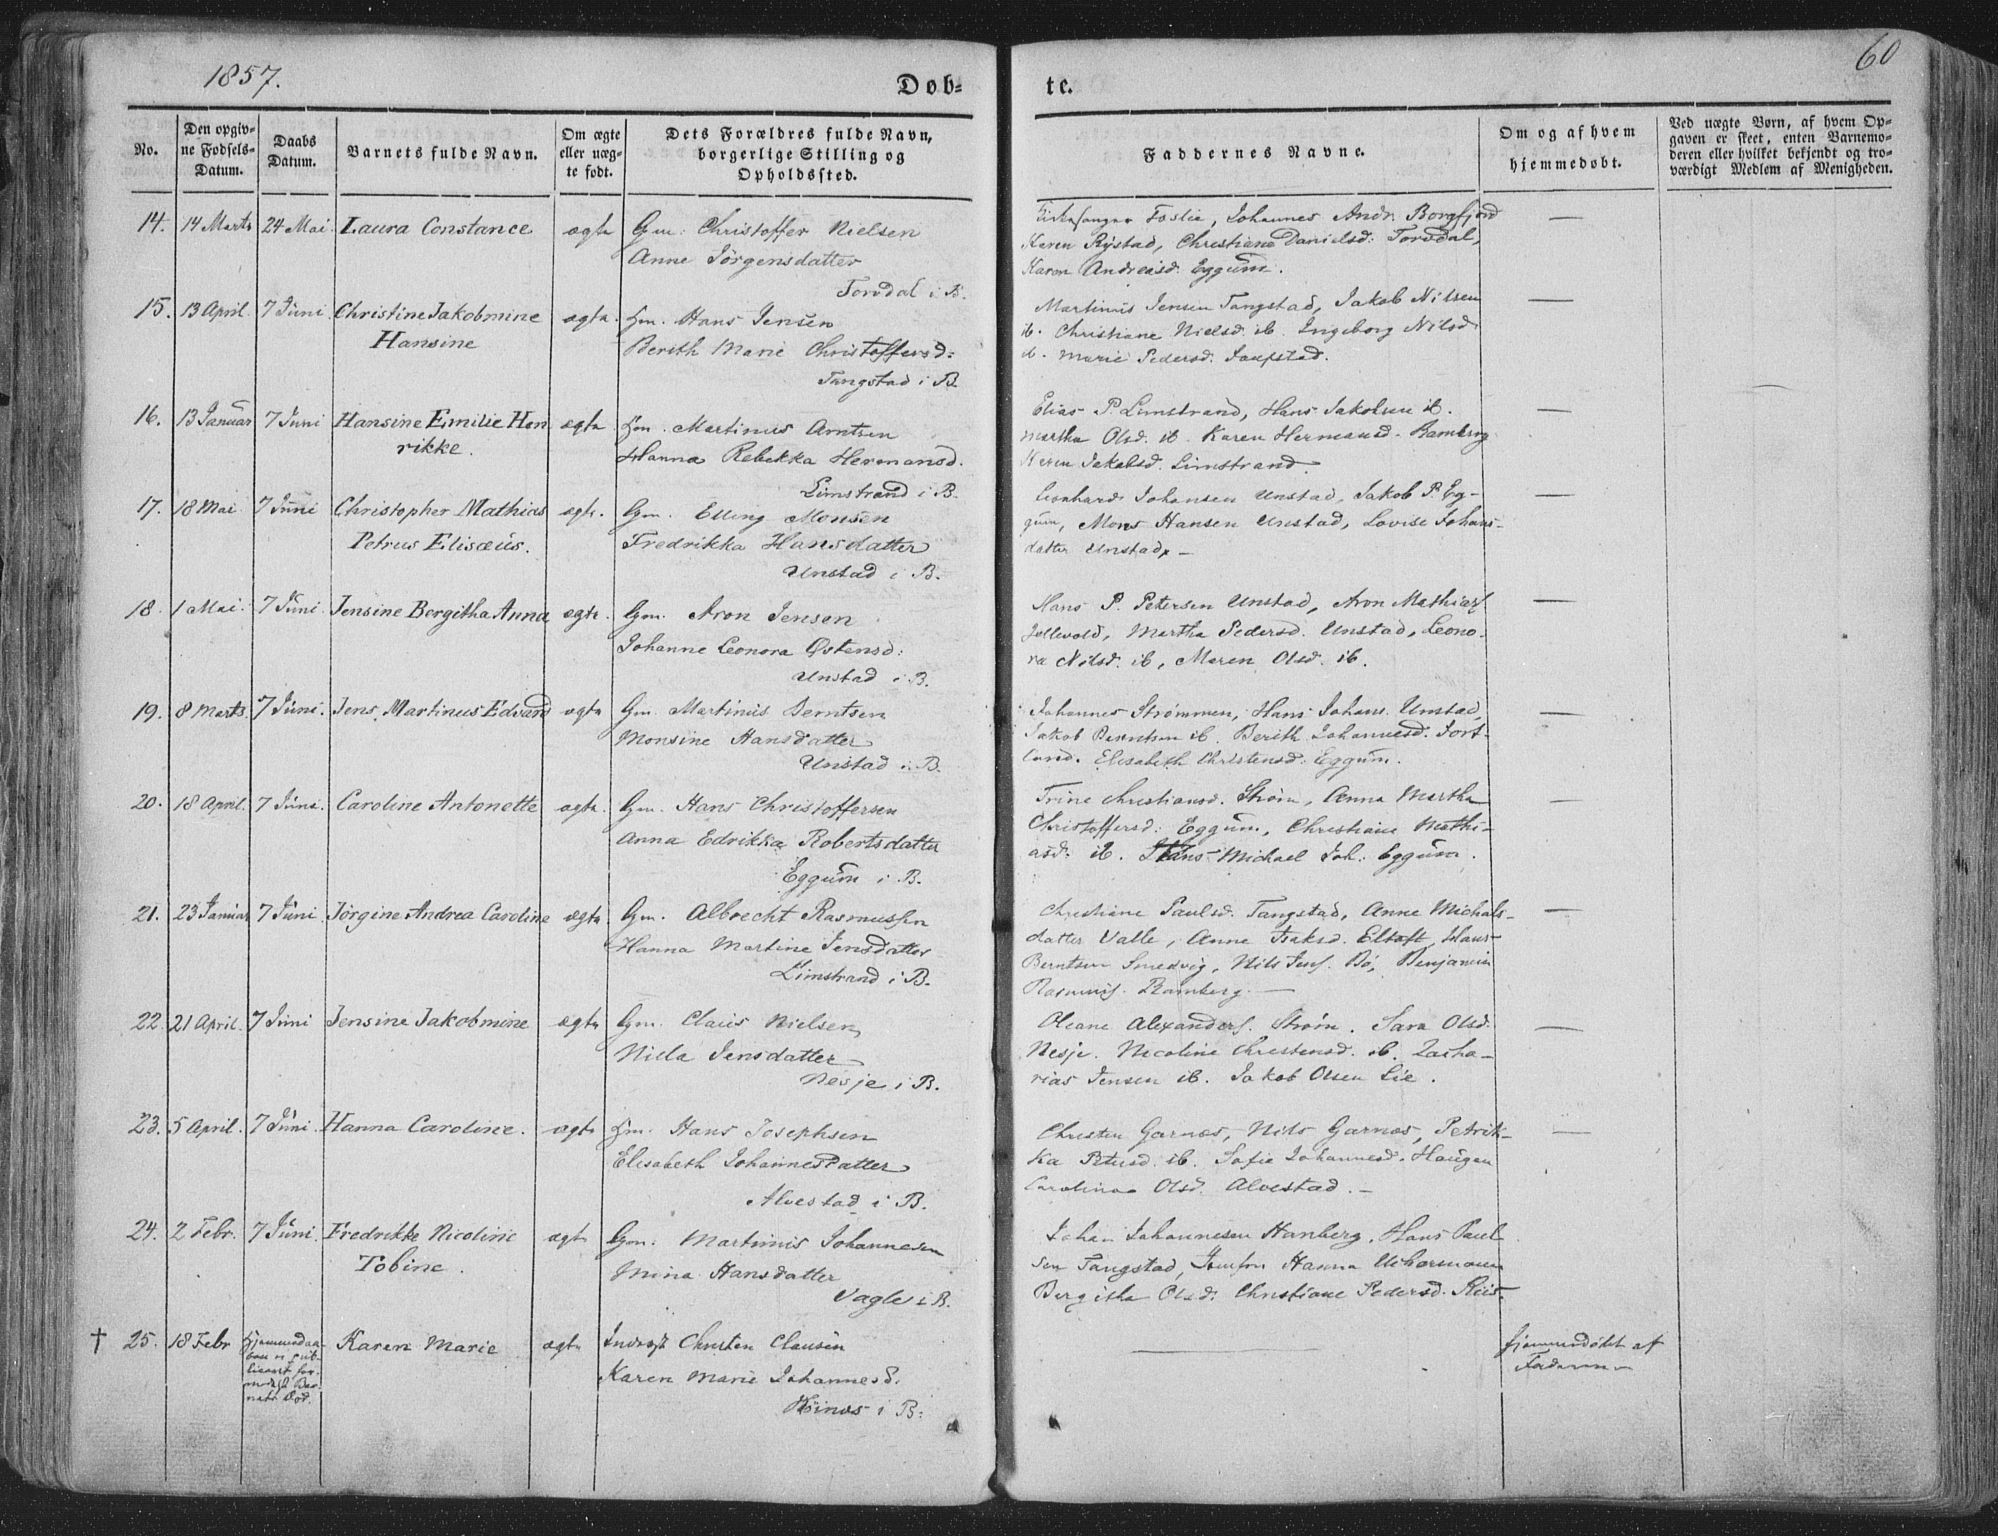 1857.
Døb-
te.
60
No.
Den opgiv-
ne Fødsels-
Datum.
Daabs
Datum.
Barnets fulde Navn.
Om ægte
eller uæg-
te født.
Dets Forældres fulde Navn,
borgerlige Stilling og
Opholdssted.
Faddernes Navne.
Om og af hvem
hjemmedøbt.
Ved uægte Børn, af hvem Op-
gaven er skeet, enten Barnemo-
deren eller hvilket bekjendt og tro-
værdigt Medlem af Menigheden.
14. 14 Marts 24 Mai Laura Constance ægte Gm. Christoffer Nielsen
Anne Jörgensdatter
Torvdal i B.
Kirkesanger Foslie, Johannes Andr. Borgfjord —
Karen Rystad, Christiane Danielsd. Torvdal,
Karen Andreasd. Eggum.
15. 13 April 7 Juni Christine Jakobmine ægte. Hm. Hans Jensen
Hansine
Berith Marie Christoffersd:
Tangstad i B.
Martinus Jensen Tangstad, Jakob Nilsen —
ib. Christiane Nielsd. ib. Ingeborg Nilsd.
ib. Marie Pedersd.
16. 13 Januar 7 Juni Hansine Emilie Hen ægte Hm. Martinus Arntsen
rikke.
Hanna Rebekka Hermansd.
Limstrand i B.
Elias P. Limstrand, Hans Jakobsen ib. —
Martha Olsd. ib. Karen Hermansd. Ramberg
Karen Jakobsd. Limstrand.
17. 18 Mai 7 Juni Christopher Mathias ægte. Gm. Elling Monsen
Petrus Elisæus.
Fredrikka Hansdatter
Unstad i B.
Leonhard Johansen Unstad, Jakob P. Eg- —
gum, Mons Hansen Unstad, Lovise Johans-
datter Unstad. —
18. 1 Mai. 7 Juni Jensine Bergitha Anna ægte. Gm. Aron Jensen
Johanne Leonora Østensd:
Unstad i B.
Hans P. Petersen Unstad, Aron Mathias —
Martha Pedersd. Unstad, Leono-
ra Nilsd. ib, Maren Olsd. ib.
19. 8 Marts. 7 Juni. Jens Martinus Edvard ægte Gm. Martinus Berntsen
Monsine Hansdatter
Unstad i B.
Johannes Strømmen, Hans Johans. Unstad, —
Jakob Berntsen ib. Berith Johannesd.
Elisabeth Christensd. Eggum.
20. 18 April. 7 Juni. Caroline Antonette ægte. Gm. Hans Christoffersen
Anna Edrikka Robertsdatter
Eggum i B.
Trine Christiansd. Strøm, Anna Martha —
Christoffersd. Eggum, Christiane Mathi-
asd. ib. Hans Michael Joh. Eggum.
21. 23 Januar 7 Juni Jörgine Andrea Caroline ægte Gm. Albrecht Rasmussen
Hanna Martine Jensdatter
Limstrand i B.
Christiane Paulsd. Tangstad, Anne Michals- —
datter Valle, Anne Isaksd. Eltoft, Hans
Berntsen Smedvig, Nils Jens. Bö, Benjamin
Rasmus. Ramberg. —
22. 21 April. 7 Juni Jensine Jakobmine ægte Gm. Claus Nielsen
Nilla Jensdatter
Nesje i B.
Oleane Alexanders. Strøm. Sara Olsd. —
Nesje. Nicoline Christensd. ib. Zacha-
rias Jensen ib. Jakob Olsen Lie.
23. 5 April. 7 Juni. Hanna Caroline. ægte Hm. Hans Josephsen
Elisabeth Johannesdatter
Alvestad i B.
Christen Garnæs, Nils Garnæs, Petrik- —
ka Petersd. ib. Sofie Johannesd. Haugen
Carolina Olsd. Alvestad. —
24. 2 Febr. 7 Juni. Fredrikke Nicoline ægte Gm. Martinus Johannesen
Tobine.
Mina Hansdatter
Vagle i B.
Johan Johannesen Hanberg. Hans Paul
sen Tangstad, Hanna
Bergitha Olsd. Christiane Pedersd.
† 25. 18 Febr Hjemmedaa- Karen Marie ægte Christen Clausen
ben
Karen Marie Johannesd.
i B.
hjemmedøbt af
Faderen